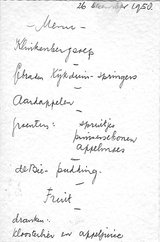 26 December 1950.
Menu
Klinkenbergsoep
Gebraden Kijkduin-springers
Aardappelen
groenten: spruitjes
prinsessebonen
appelmoes
de Bie-pudding.
Fruit
dranken:
kloosterbier en appel